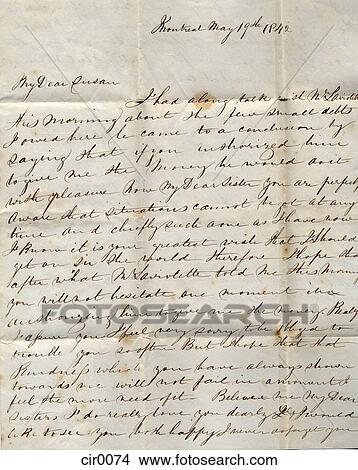 Montreal May 19th 1842
My Dear Susan
I had along talk with Mr Laviolette
this Morning about the few small debts
I owed here he came to a conclusion by
saying that if you authorized him
to give me the Money he would do it
with pleasure Now My Dear Sister you are perfectly
aware that situations cannot be got at any
time and chiefly such a one as I have now
I know it is your greatest wish that I should
get on in the world therefore I hope that
after what Mr Laviolette told me this morning
you will not hesitate one moment in
authorizing him to give me the money Really
I assure you I feel very sorry to be obliged to
trouble you so often But I hope that that
Kindness which you have always shown
towards me will not fail in a moment I
feel the more need of it Believe me My Dear
Sisters I do really love you dearly
like to see you both happy I never forget you
fotosearch
cir0074 www.fotosearch.com